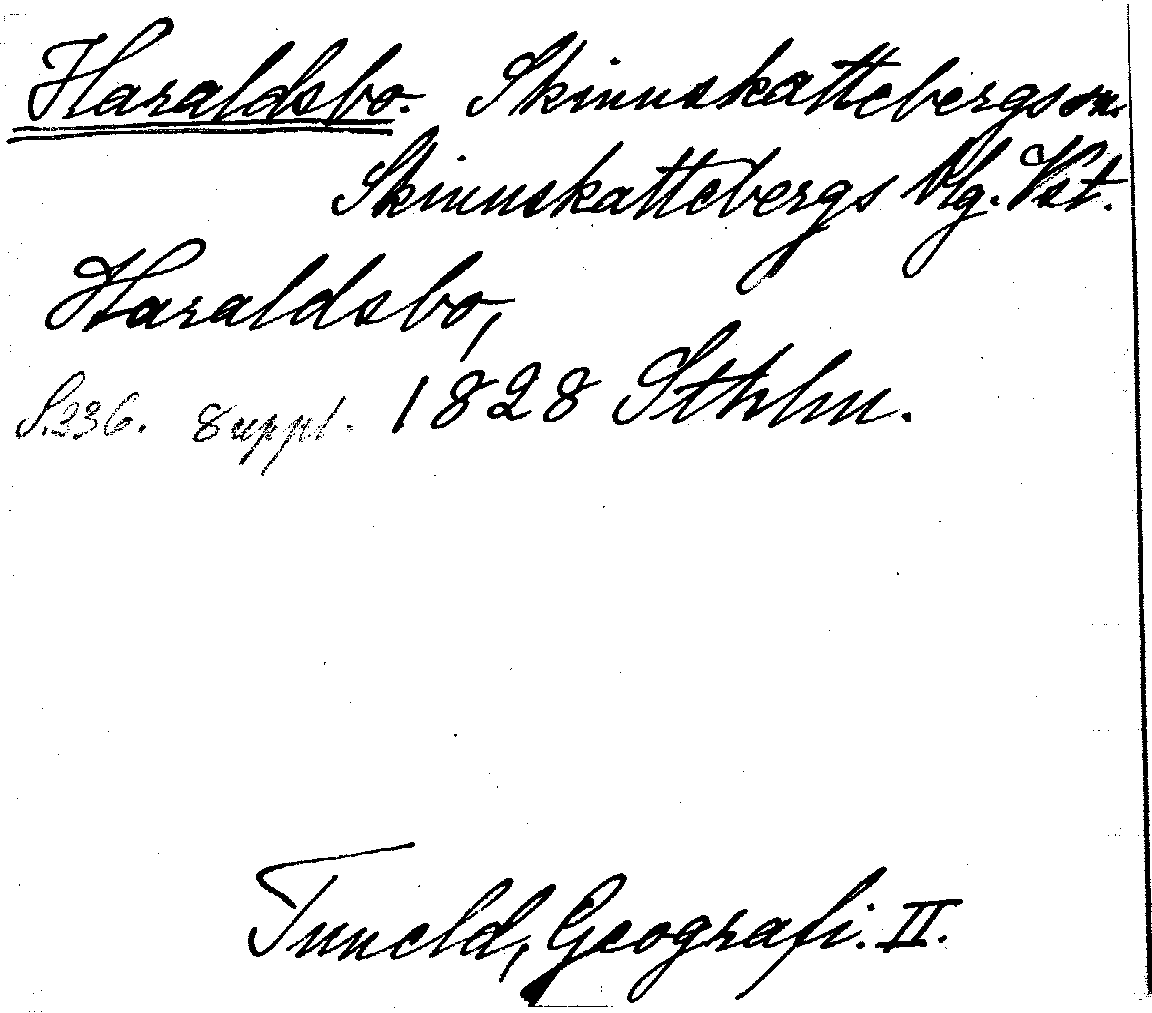 Haraldsbo. Skinnskattebergs sn.
Skinnskattebergs Blg. Vst.
Haraldsbo,
S. 236. Suppl. 1828 Sthlm.
Tuneld, Geografi. II.